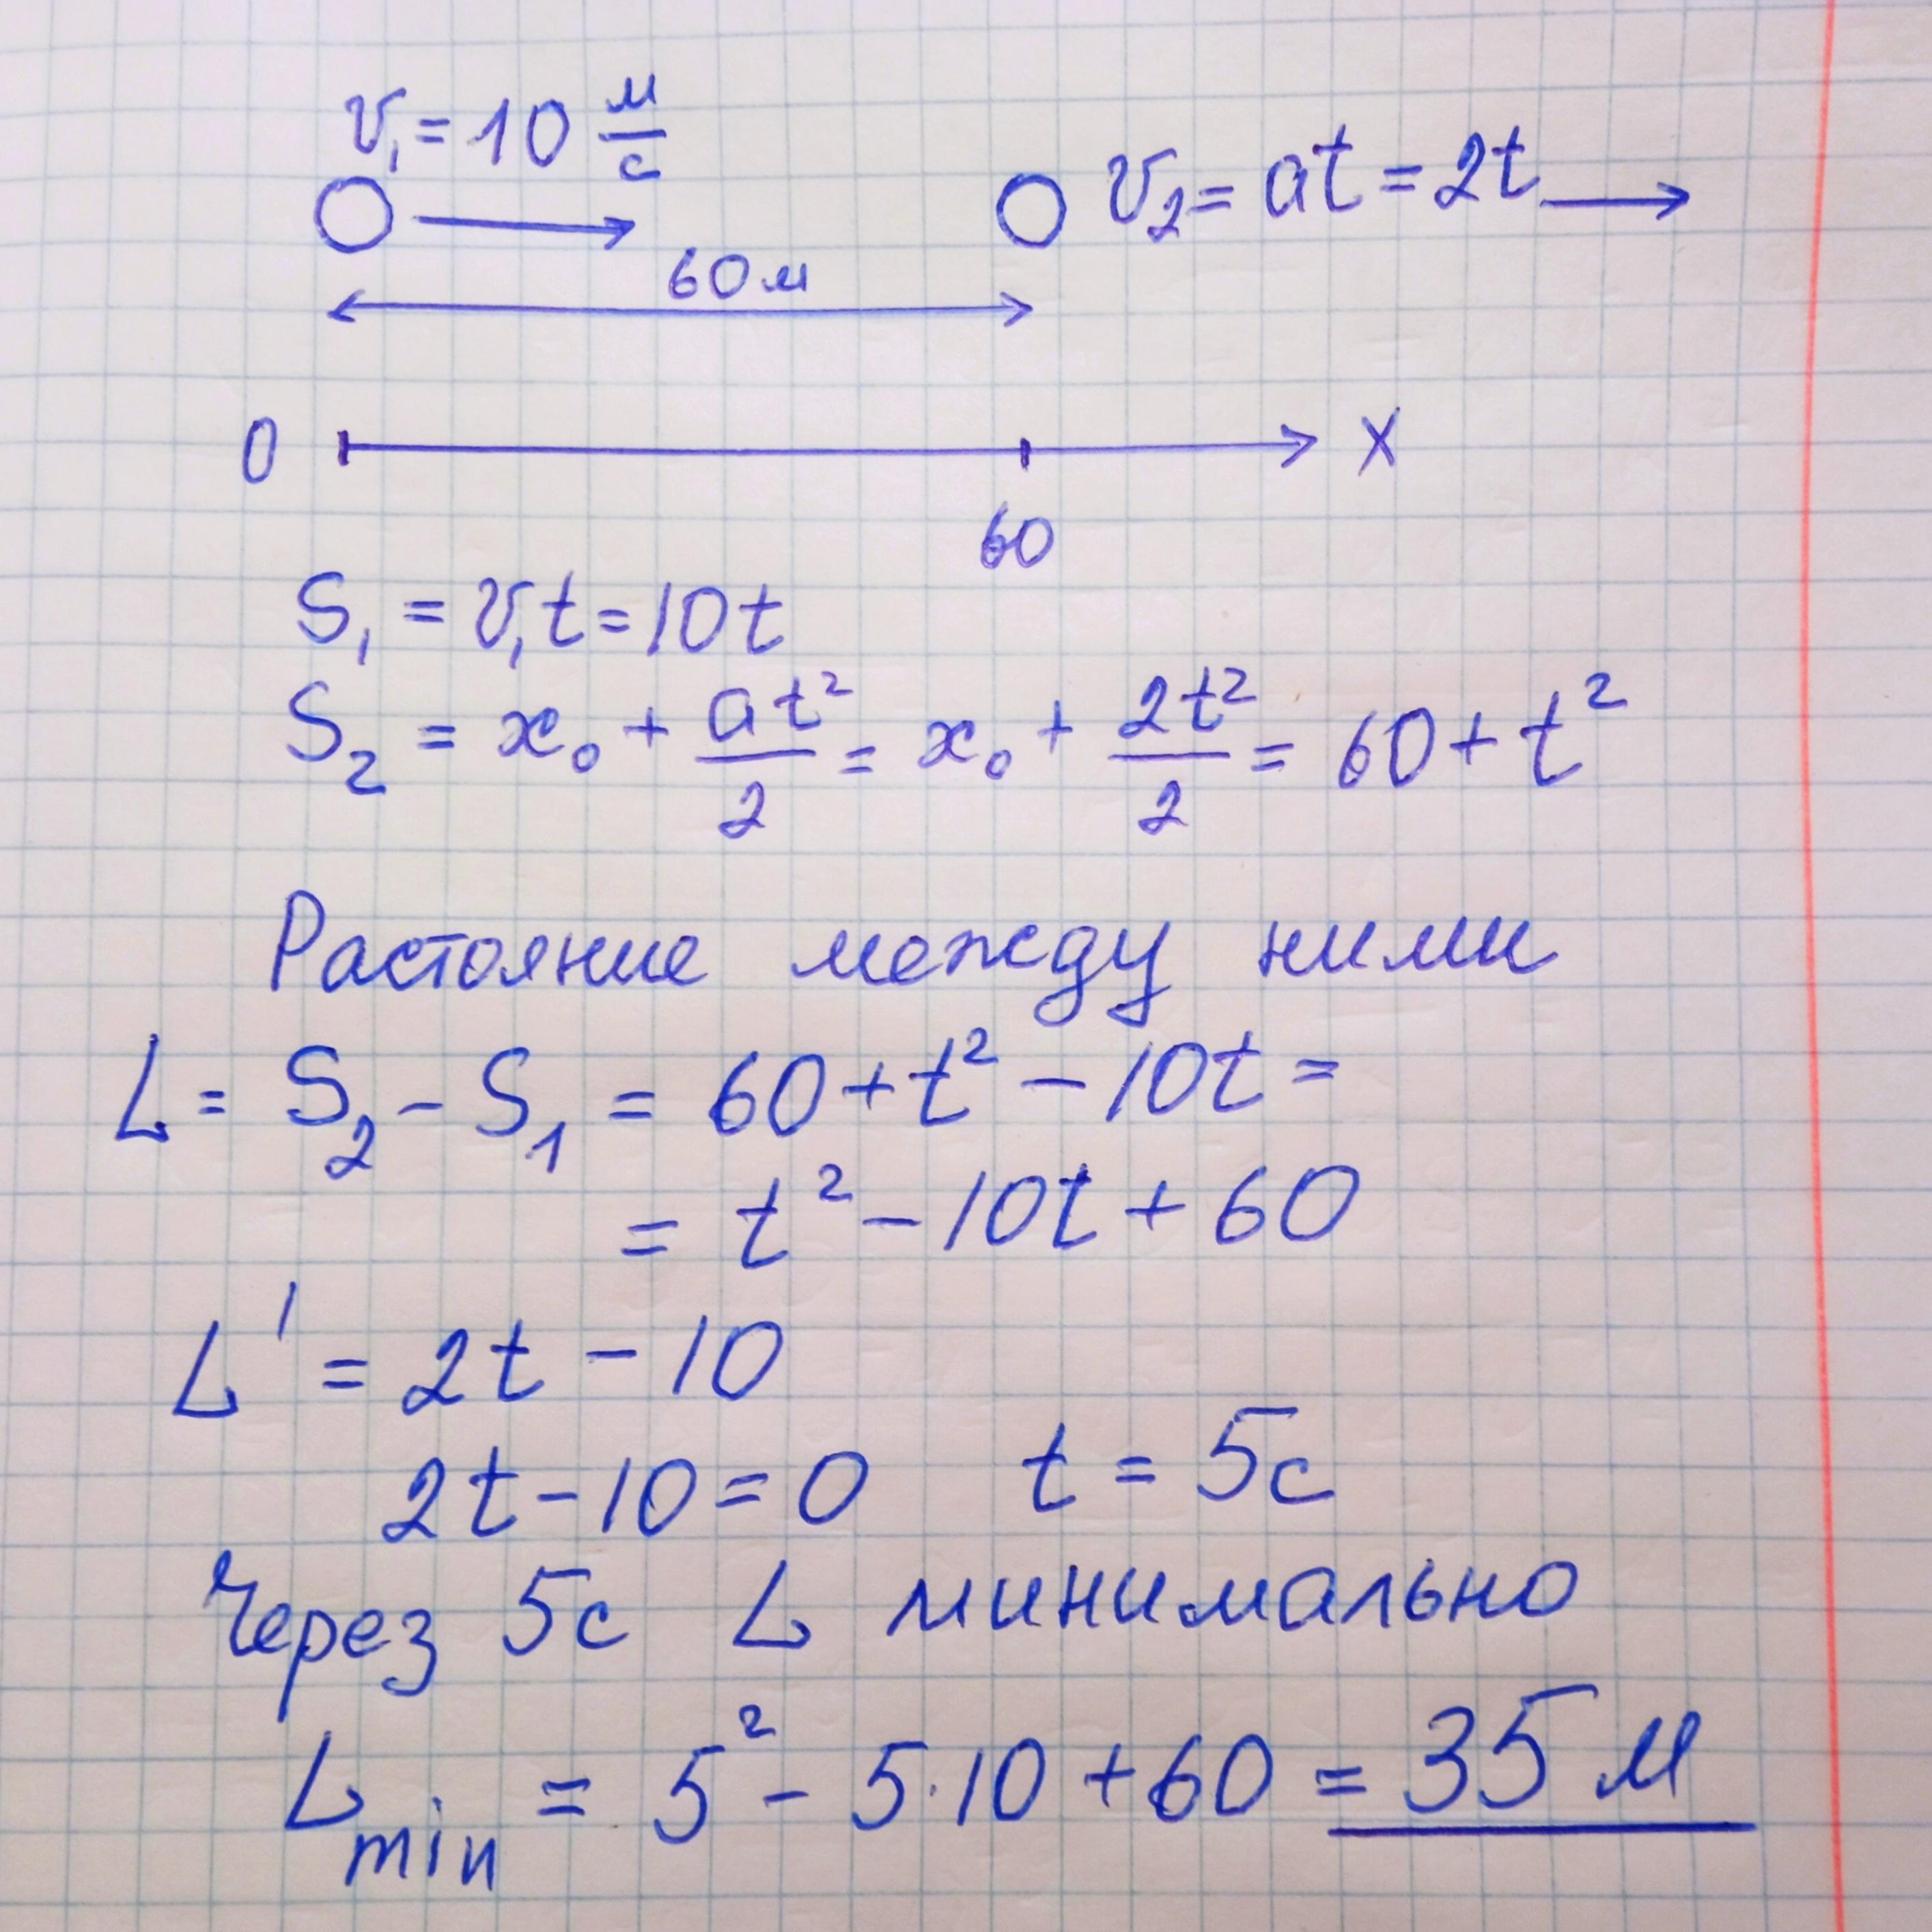 v₁ = 10 м/с
v₂ = at = 2t
60 м
0 x
60
S₁ = v₁t = 10t
S₂ = x₀ + at²/2 = x₀ + 2t²/2 = 60 + t²
Растояние между ними
L = S₂ - S₁ = 60 + t² - 10t =
= t² - 10t + 60
L' = 2t - 10
2t - 10 = 0 t = 5с
Через 5с L минимально
Lmin = 5² - 5·10 + 60 = 35 м